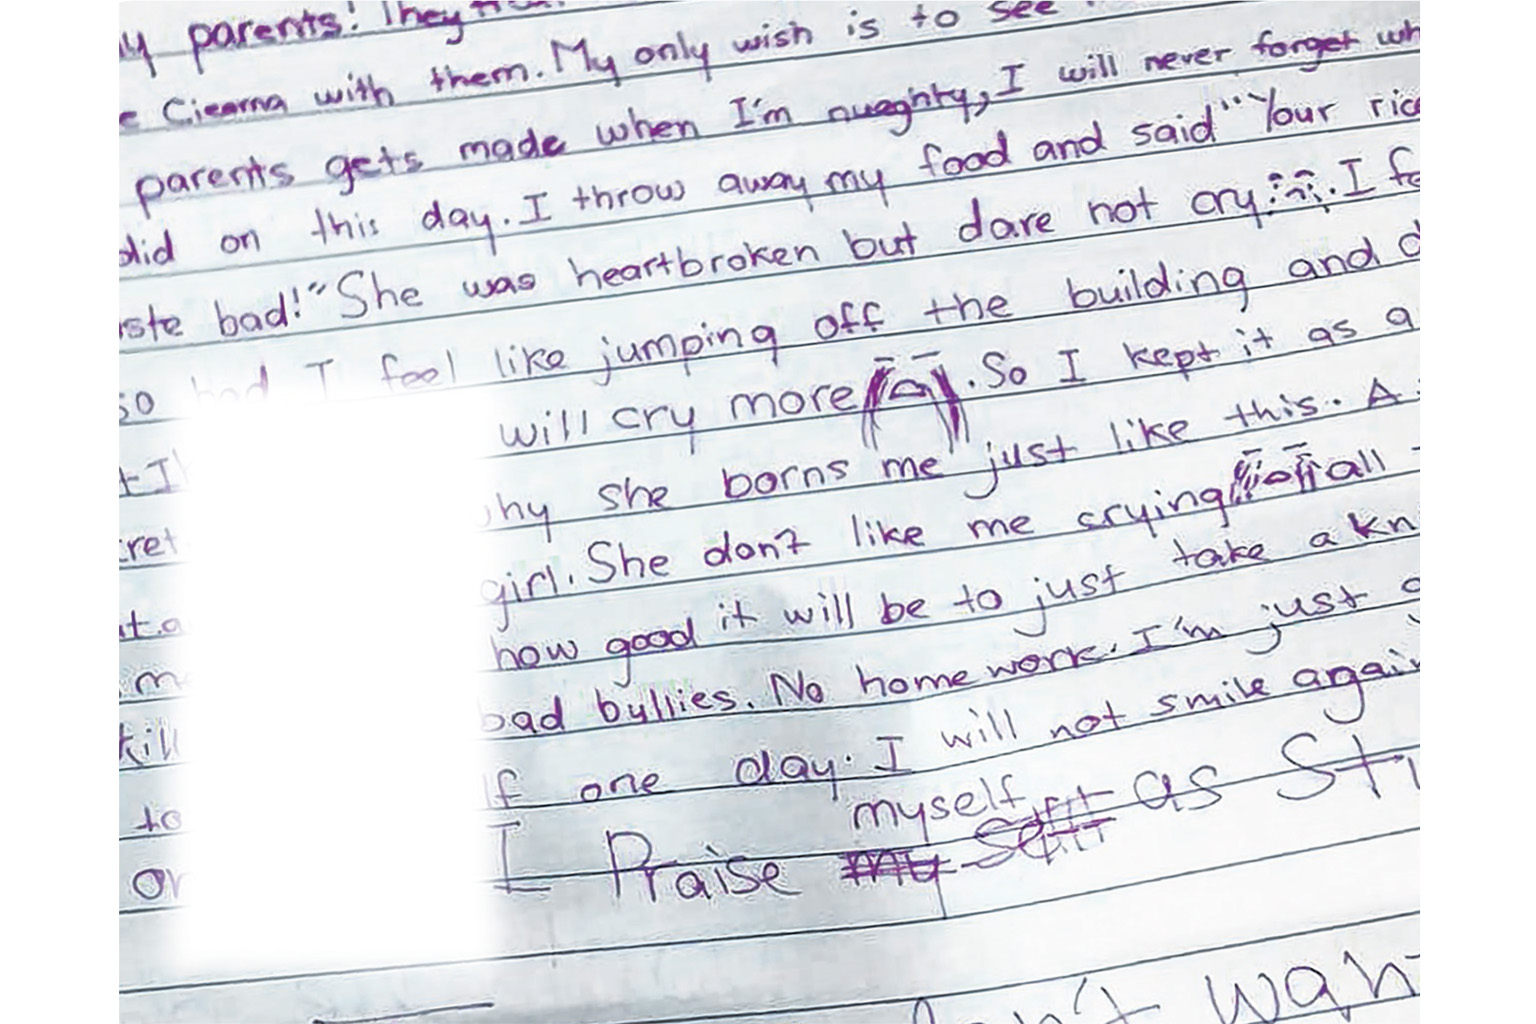 parents! They
Ciearna with them. My only wish is to see
parents gets made when I'm nueghty, I will never forget
did on this day. I throw away my food and said "Your
bad!" She was heartbroken but dare not cry. I
so bad I feel like jumping off the building and
I will cry more. So I kept it as a
she borns me just like this. A
girl. She don't like me crying all
how good it will be to just take a
kill bad bullies. No home work. I'm just
to one day. I will not smile again
I Praise myself as